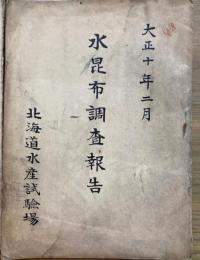 大正十年二月
水昆布調査報告
北海道水産試驗場